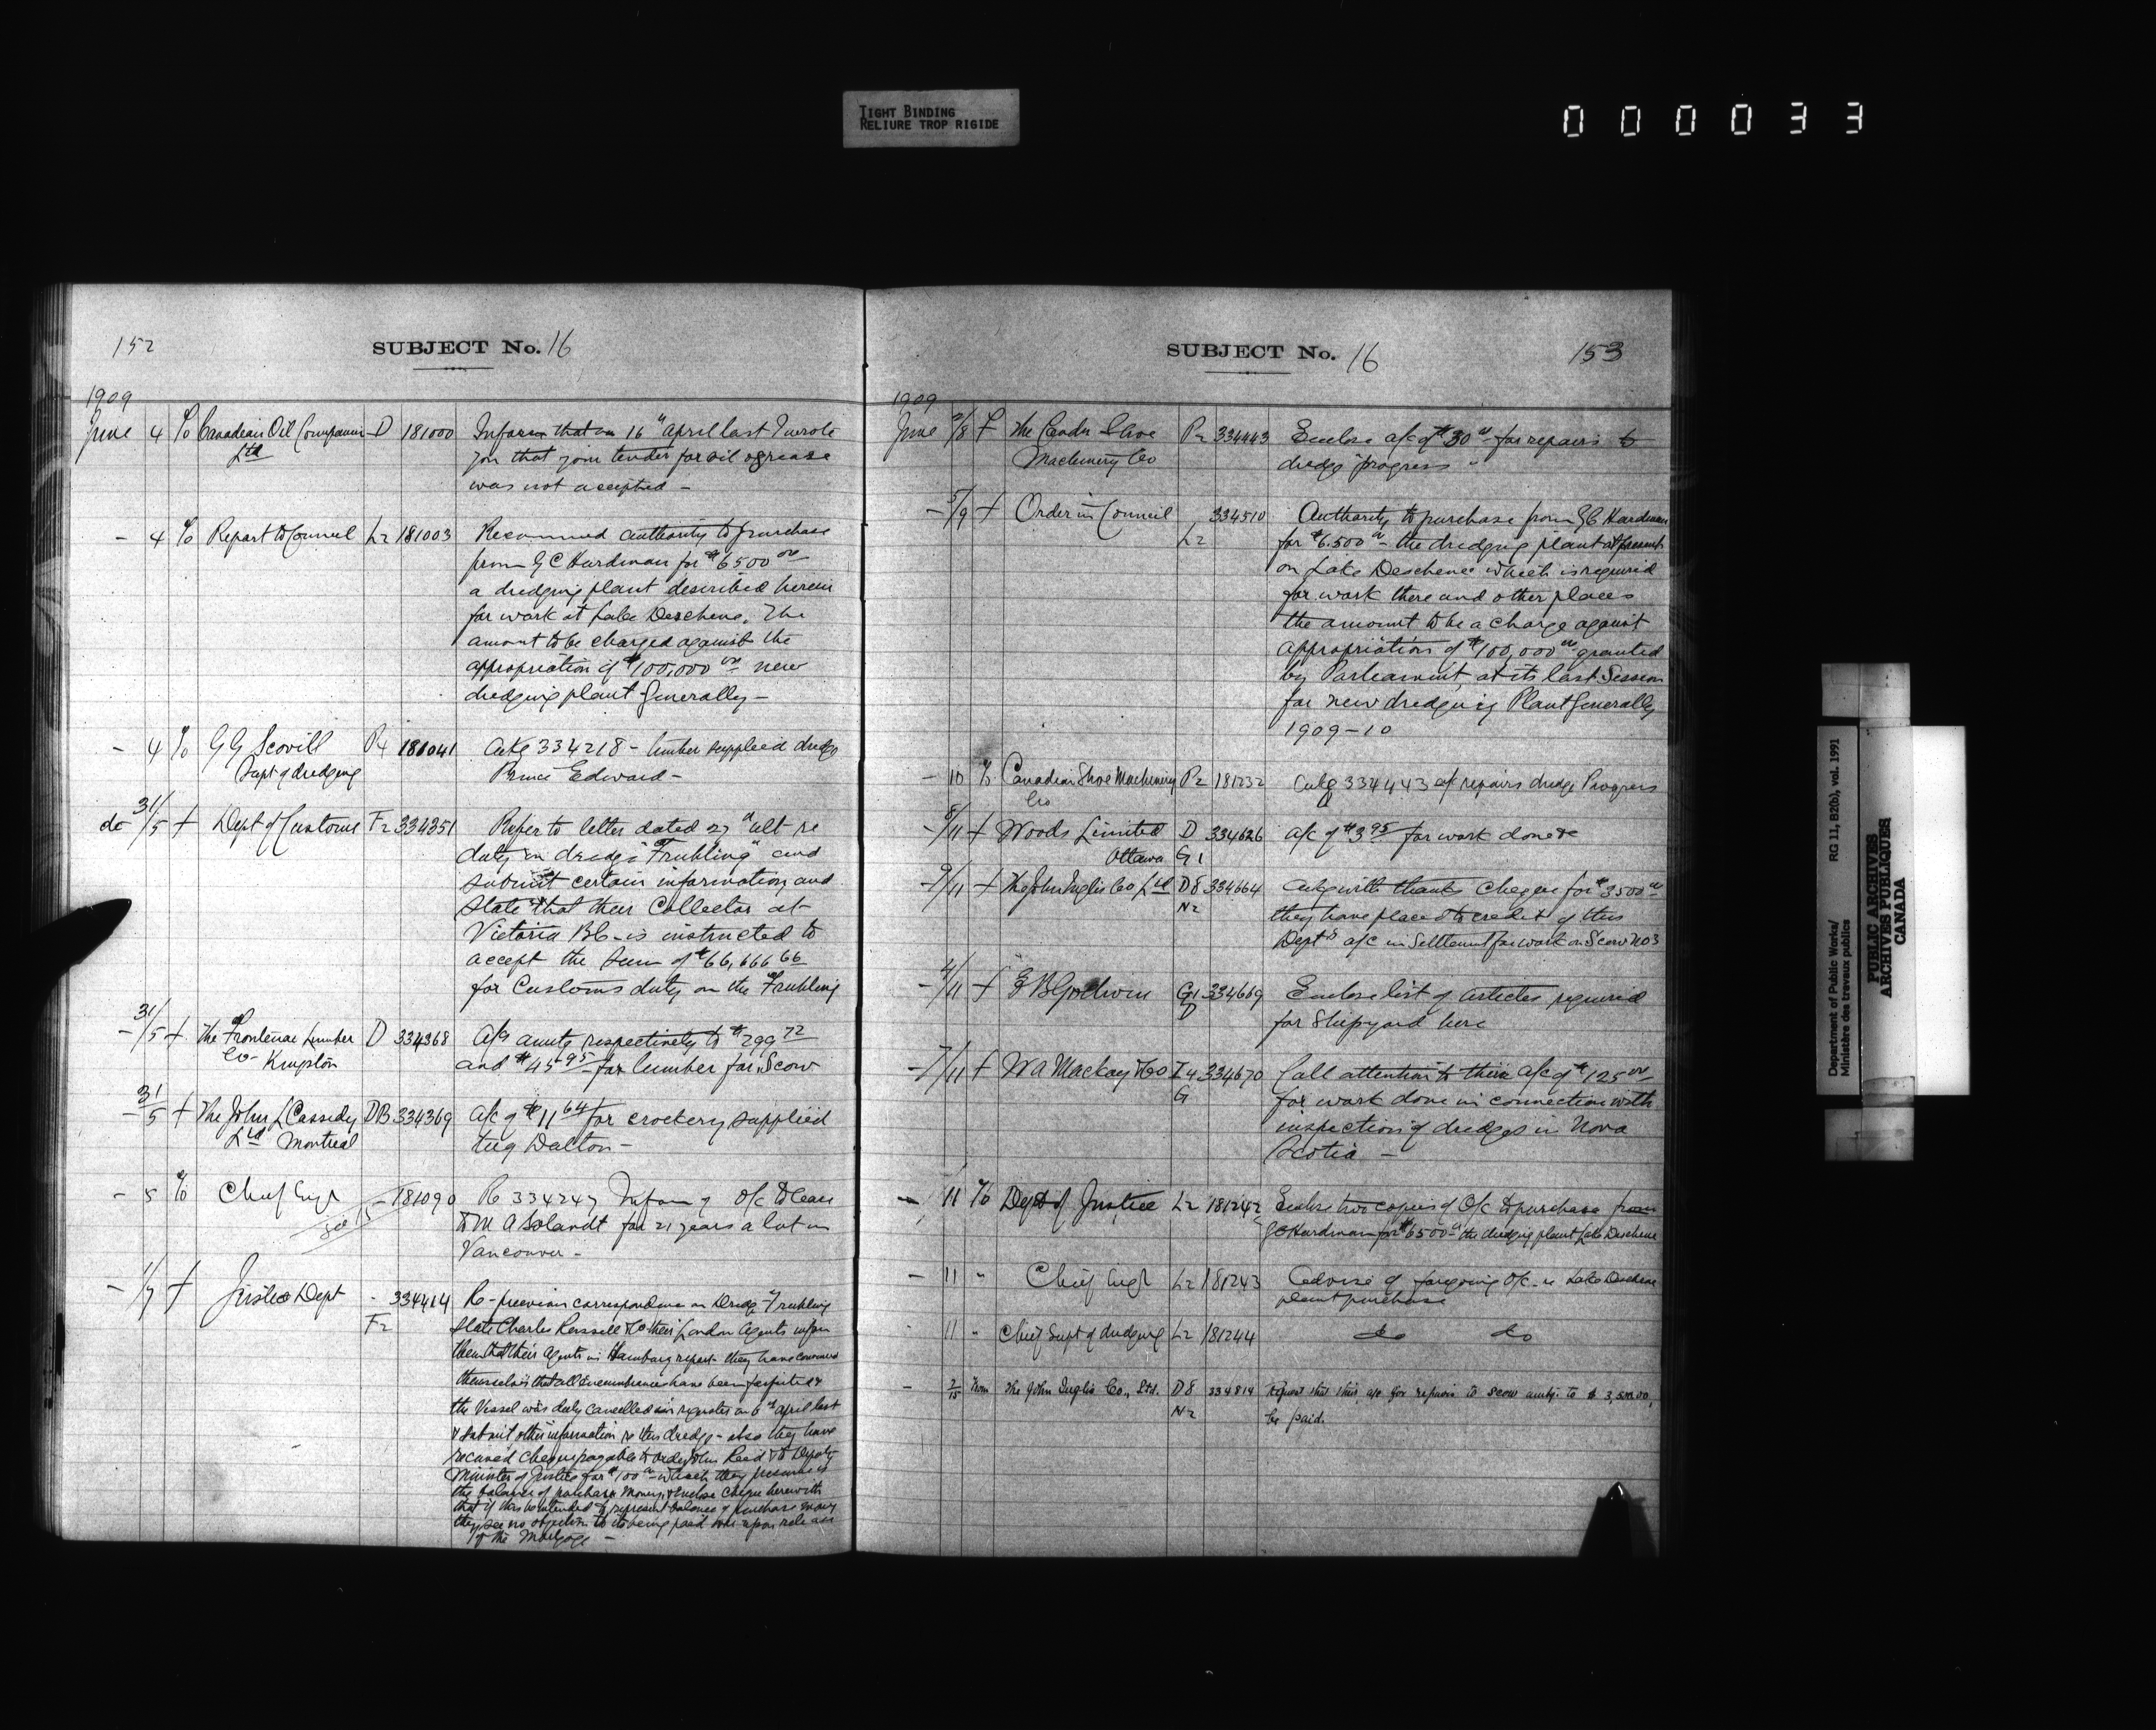 TIGHT BINDING
RELIURE TROP RIGIDE
000033
152
SUBJECT No. 16
1909
June 4 To Canadian Oil Companies D 181000 Inform that on 16" April last I wrote
Ltd you that your tender for oil & grease
was not accepted -
- 4 To Report to Council L2 181003 Recommend authority to purchase
from G C Hurdman for $6500 00
a dredging plant described herein
for work at Lake Deschene. The
amount to be charged against the
appropriation of $100,000 00 new
dredging plant generally -
- 4 To G G Scovill P4 181041 Ackg 334218 - lumber supplied dredge
Supt of dredging Prince Edward -
do 31/5 f Dept of Customs F2 334351 Refer to letter dated 27" ult re
duty on dredge "Fruhling" and
submit certain information and
state that their Collector at
Victoria BC - is instructed to
accept the sum of $66,666 66
for Customs duty on the Fruhling
- 31/5 f The Frontenac Lumber D 334368 A/cs amtg respectively to $299 72
Co - Kingston and $45 95 - for lumber for Scow
- 31/5 f The John L Cassidy DB 334369 a/c of $11 64 for crockery supplied
Ltd Montreal tug Dalton -
- 5 To Chief Engr - 181090 Re 334247 Inform of O/C to lease
to M A Solandt for 21 years a lot in
Vancouver -
- 1/7 f Justice Dept - 334414 Re - previous correspondence on Dredge Fruhling
F2 State Charles Russell & Co their London Agents inform
them that their Agents in Hamburg report they have convinced
themselves that all encumbrances have been
the Vessel was duly cancelled in register on 6" April last
& submit other information re this dredge - also they have
received cheque payable to order John Reid & to Deputy
Minister of Justice for $100 00 - which they presume is
the balance of purchase money, & enclose cheque herewith
that if it was intended to represent balance of purchase money
they see no objection to its being paid over upon release
of the Mortgage -
SUBJECT No. 16
153
1909
June 2/8 f The Canadn Shoe P2 334443 Enclose a/c of $30 00 - for repairs to
Machinery Co dredge "progress"
- 5/9 f Order in Council 334510 Authority to purchase from G C Hurdman
L2 for $6.500 00 - the dredging plant at present
on Lake Deschene which is required
for work there and other places
the amount to be a charge against
appropriation of $100,000 00 granted
by Parliament at its last Session
for new dredging Plant generally
1909-10
- 10 To Canadian Shoe Machinery P2 181232 Ackg 334443 a/c repairs dredge Progress
Co
- 8/11 f Woods Limited D 334626 a/c of $3 95 for work done &c
Ottawa G1
- 9/11 f The John Inglis Co Ltd D8 334664 Ackg with thanks cheque for $3500 00
N2 they have placed to credit of this
Dept's a/c in Settlement for work on Scow No 3
- 4/11 f E B Godwin G1 334669 Enclose list of articles required
D for Shipyard here
- 7/11 f W A Mackay & Co I4 334670 Call attention to their a/c of $125 00
G for work done in connection with
inspection of dredges in Nova
Scotia -
- 11 To Dept of Justice L2 181242 Enclose two copies of O/C to purchase from
G C Hurdman for $6500 - the dredging plant Lake Deschene
- 11 " Chief Engr L2 181243 Advise of foregoing O/C - re Lake Deschene
plant purchase
11 " Chief Supt of dredging L2 181244 do do
- 2/15 From The John Inglis Co., Ltd. D8 334814 Request that this a/c for repairs to scow amtg. to $3,500.00,
N2 be paid.
Department of Public Works/ RG 11, B2(b), vol. 1991
Ministère des travaux publics
PUBLIC ARCHIVES
ARCHIVES PUBLIQUES
CANADA